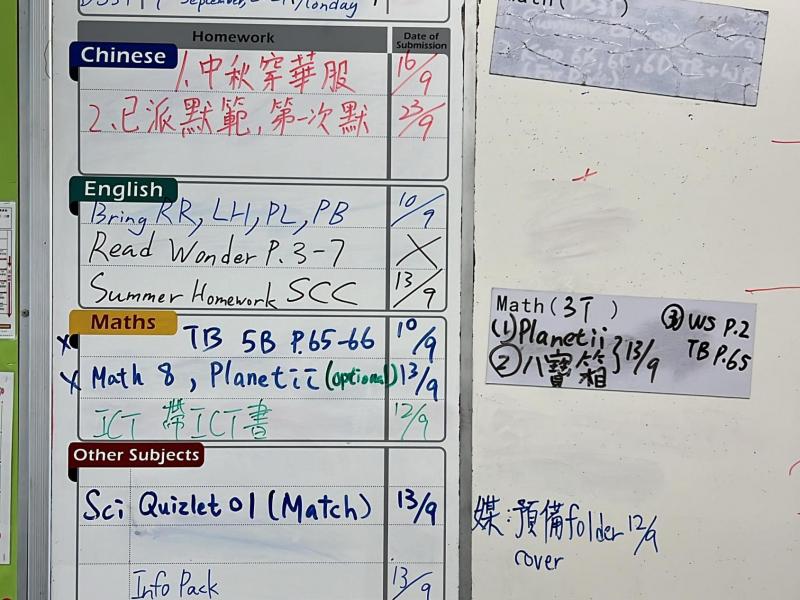 Homework Date of Submission
Chinese
1. 中秋穿華服 16/9
2. 已派默範, 第一次默 23/9
English
Bring RR, LH, PL, PB 10/9
Read Wonder P. 3-7 X
Summer Homework SCC 13/9
Maths
x TB 5B P.65-66 10/9
x Math 8, Planetii (optional) 13/9
ICT 帶ICT書 12/9
Other Subjects
Sci Quizlet 01 (Match) 13/9
Info Pack 13/9
Math (3T)
(1) Planetii
② 八寶箱 } 13/9
③ WS P.2
TB P.65
媒:預備folder 12/9
cover